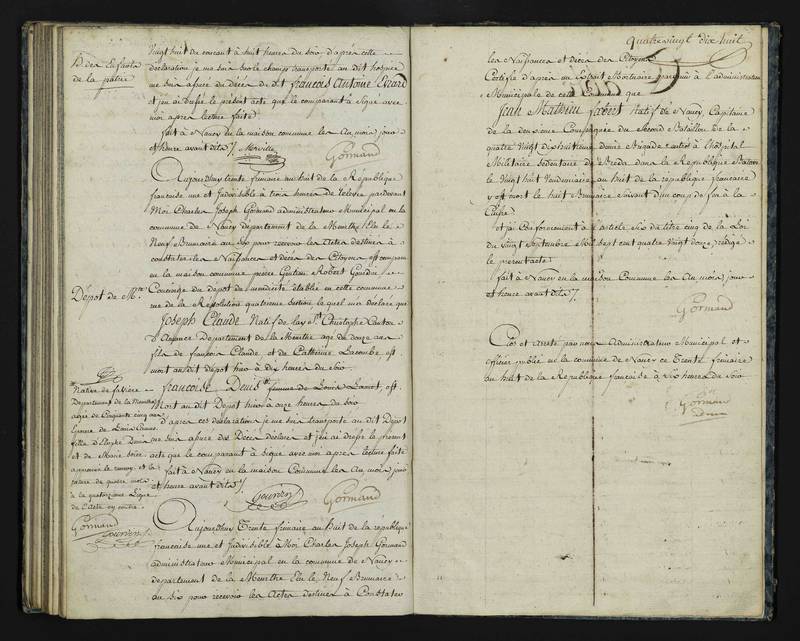 D. des Enfants
de la patrie
Vingt huit du courant à huit heures du soir d'après cette
déclaration je me suis sur le champ transporté au dit hospice
me suis assuré du décès du dt françois Antoine Evrard
et j'en ai dressé le présent acte que le comparant a signé avec
moi après lecture faite
fait à Nancy en la maison commune les an, mois, jour
et heure avant dits
Gormand
Aujourdhuy trente frimaire an huit de la République
française une et indivisible à trois heures de relevée pardevant
Moi Charles Joseph Gormand administrateur Municipal en la
commune de Nancy département de la Meurthe Elu le
Neuf Brumaire an six pour recevoir les Actes destinés à
constater les Naissances et décès des Citoyens est comparu
en la maison commune pierre Gentien Robert
Concierge du dépôt de mendicité établi en cette commune
rue de la Révolution quatrième section lequel m'a déclaré que
Dépôt de Mté
Joseph Claude Natif de lay St Christophe Canton
d'Amance Département de la Meurthe agé de douze ans
fils de françois Claude et de Catherine Lacombe, est
mort au dit dépôt hier à dix heures du soir
françoise Denis femme de Louis Lamet, est
Mort au dit Dépôt hier à onze heures du soir
d'après ces déclarations je me suis transporté au dit Dépôt
me suis assuré des Décès déclarés et j'en ai dressé le présent
acte que le comparant a signé avec moi après lecture faite
fait à Nancy en la maison Commune les An, mois, jour
et heure avant dits
Gormand
Native de
Département de la Meurthe
agée de Cinquante cinq ans
Epouse de Louis
fille d'Elophe Denis
et de Marie
approuvé le renvoy et la
rature de quatre mots
à la quatorzième ligne
de l'acte cy contre
Gormand
Aujourdhuy Trente frimaire an huit de la république
française une et Indivisible à Moi Charles Joseph Gormand
administrateur Municipal en la commune de Nancy
département de la Meurthe Elu le Neuf Brumaire
an six pour recevoir les Actes destinés à Constater
Quatre vingt dix huit
les Naissances et décès des Citoyens
Certifie d'après un Extrait Mortuaire parvenu à l'administration
Municipale de cette Commune que
Jean Mathieu fabert Natif de Nancy, Capitaine
de la deuxième Compagnie du Second Bataillon de la
quatre vingt dix huitième demie Brigade entré à l'hôpital
Militaire sédentaire de Breda dans la République Batave
le Vingt huit Vendemiaire an huit de la république francaise
y est mort le huit Brumaire suivant d'un coup de feu à la
Cuisse
et j'ai Conformément à l'article six du titre cinq de la Loi
du vingt septembre Mil sept cent quatre vingt douze, rédigé
le présent acte
fait à Nancy en la maison Commune les An, mois, jour
et heure avant dits
Gormand
Clos et Arrêté par nous Administrateur Municipal et
officier public en la commune de Nancy ce Trente frimaire
an huit de la République francaise à six heures du soir
Gormand